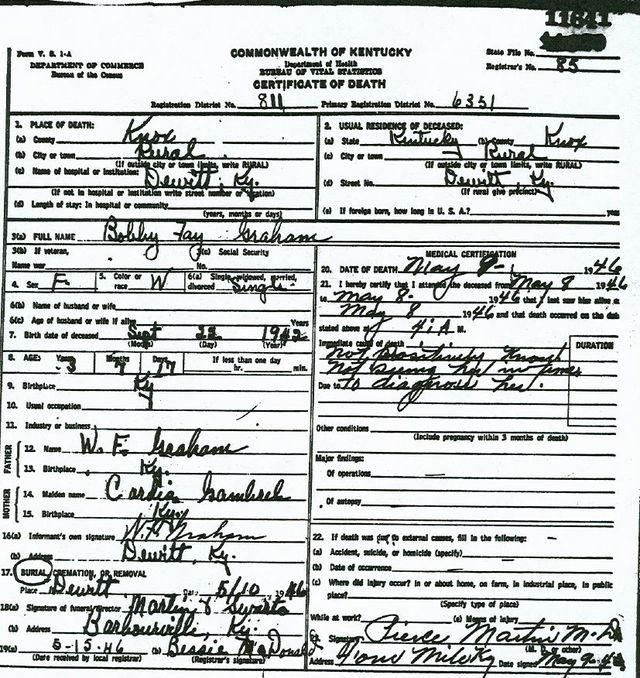 11841
Form V. S. 1-A
COMMONWEALTH OF KENTUCKY
State File No.
DEPARTMENT OF COMMERCE
Department of Health
Bureau of the Census
BUREAU OF VITAL STATISTICS
Registrar's No. 85
CERTIFICATE OF DEATH
Registration District No. 811 Primary Registration District No. 6351
1. PLACE OF DEATH:
(a) County Knox
(b) City or town Rural
(If outside city or town limits, write RURAL)
(c) Name of hospital or institution: Dewitt, Ky.
(If not in hospital or institution write street number or location)
(d) Length of stay: In hospital or community
(years, months or days)
2. USUAL RESIDENCE OF DECEASED:
(a) State Kentucky (b) County Knox
(c) City or town Rural
(If outside city or town limits, write RURAL)
(d) Street No. Dewitt, Ky.
(If rural give precinct)
(e) If foreign born, how long in U. S. A.? years
3(a) FULL NAME Bobby Fay Graham
3(b) If veteran, 3(c) Social Security
Name war No.
4. Sex F. 5. Color or race W 6(a) Single, widowed, married, divorced Single
6(b) Name of husband or wife
6(c) Age of husband or wife if alive Years
7. Birth date of deceased Sept 22 1942
(Month) (Day) (Year)
8. AGE: Years 3 Months 7 Days 17 If less than one day hr. min.
9. Birthplace Ky
10. Usual occupation
11. Industry or business
FATHER
12. Name W. F. Graham
13. Birthplace Ky.
MOTHER
14. Maiden name Cardia Gambrel
15. Birthplace Ky.
16(a) Informant's own signature W F Graham
(b) Address Dewitt, Ky.
17. BURIAL, CREMATION, OR REMOVAL
Place Dewitt Date 5/10 1946
18(a) Signature of funeral director Martin & Swartz
(b) Address Barbourville, Ky.
19(a) 5-15-46 (b) Bessie McDonald
(Date received by local registrar) (Registrar's signature)
MEDICAL CERTIFICATION
20. DATE OF DEATH May 9- 1946
21. I hereby certify that I attended the deceased from May 8 1946
to May 8- 1946 that I last saw him alive on
May 8 1946 and that death occurred on the date
stated above at 4:A M.
Immediate cause of death DURATION
Not positively known
Not seeing her in time
Due to to diagnose her.
Other conditions
(Include pregnancy within 3 months of death)
Major findings:
Of operations
Of autopsy
22. If death was due to external causes, fill in the following:
(a) Accident, suicide, or homicide (specify)
(b) Date of occurrence
(c) Where did injury occur? In or about home, on farm, in industrial place, in public
place?
(Specify type of place)
While at work? (e) Means of injury
23. Signature Pierce Martin M.D
(M. D. or other)
Address Date signed May 9-46